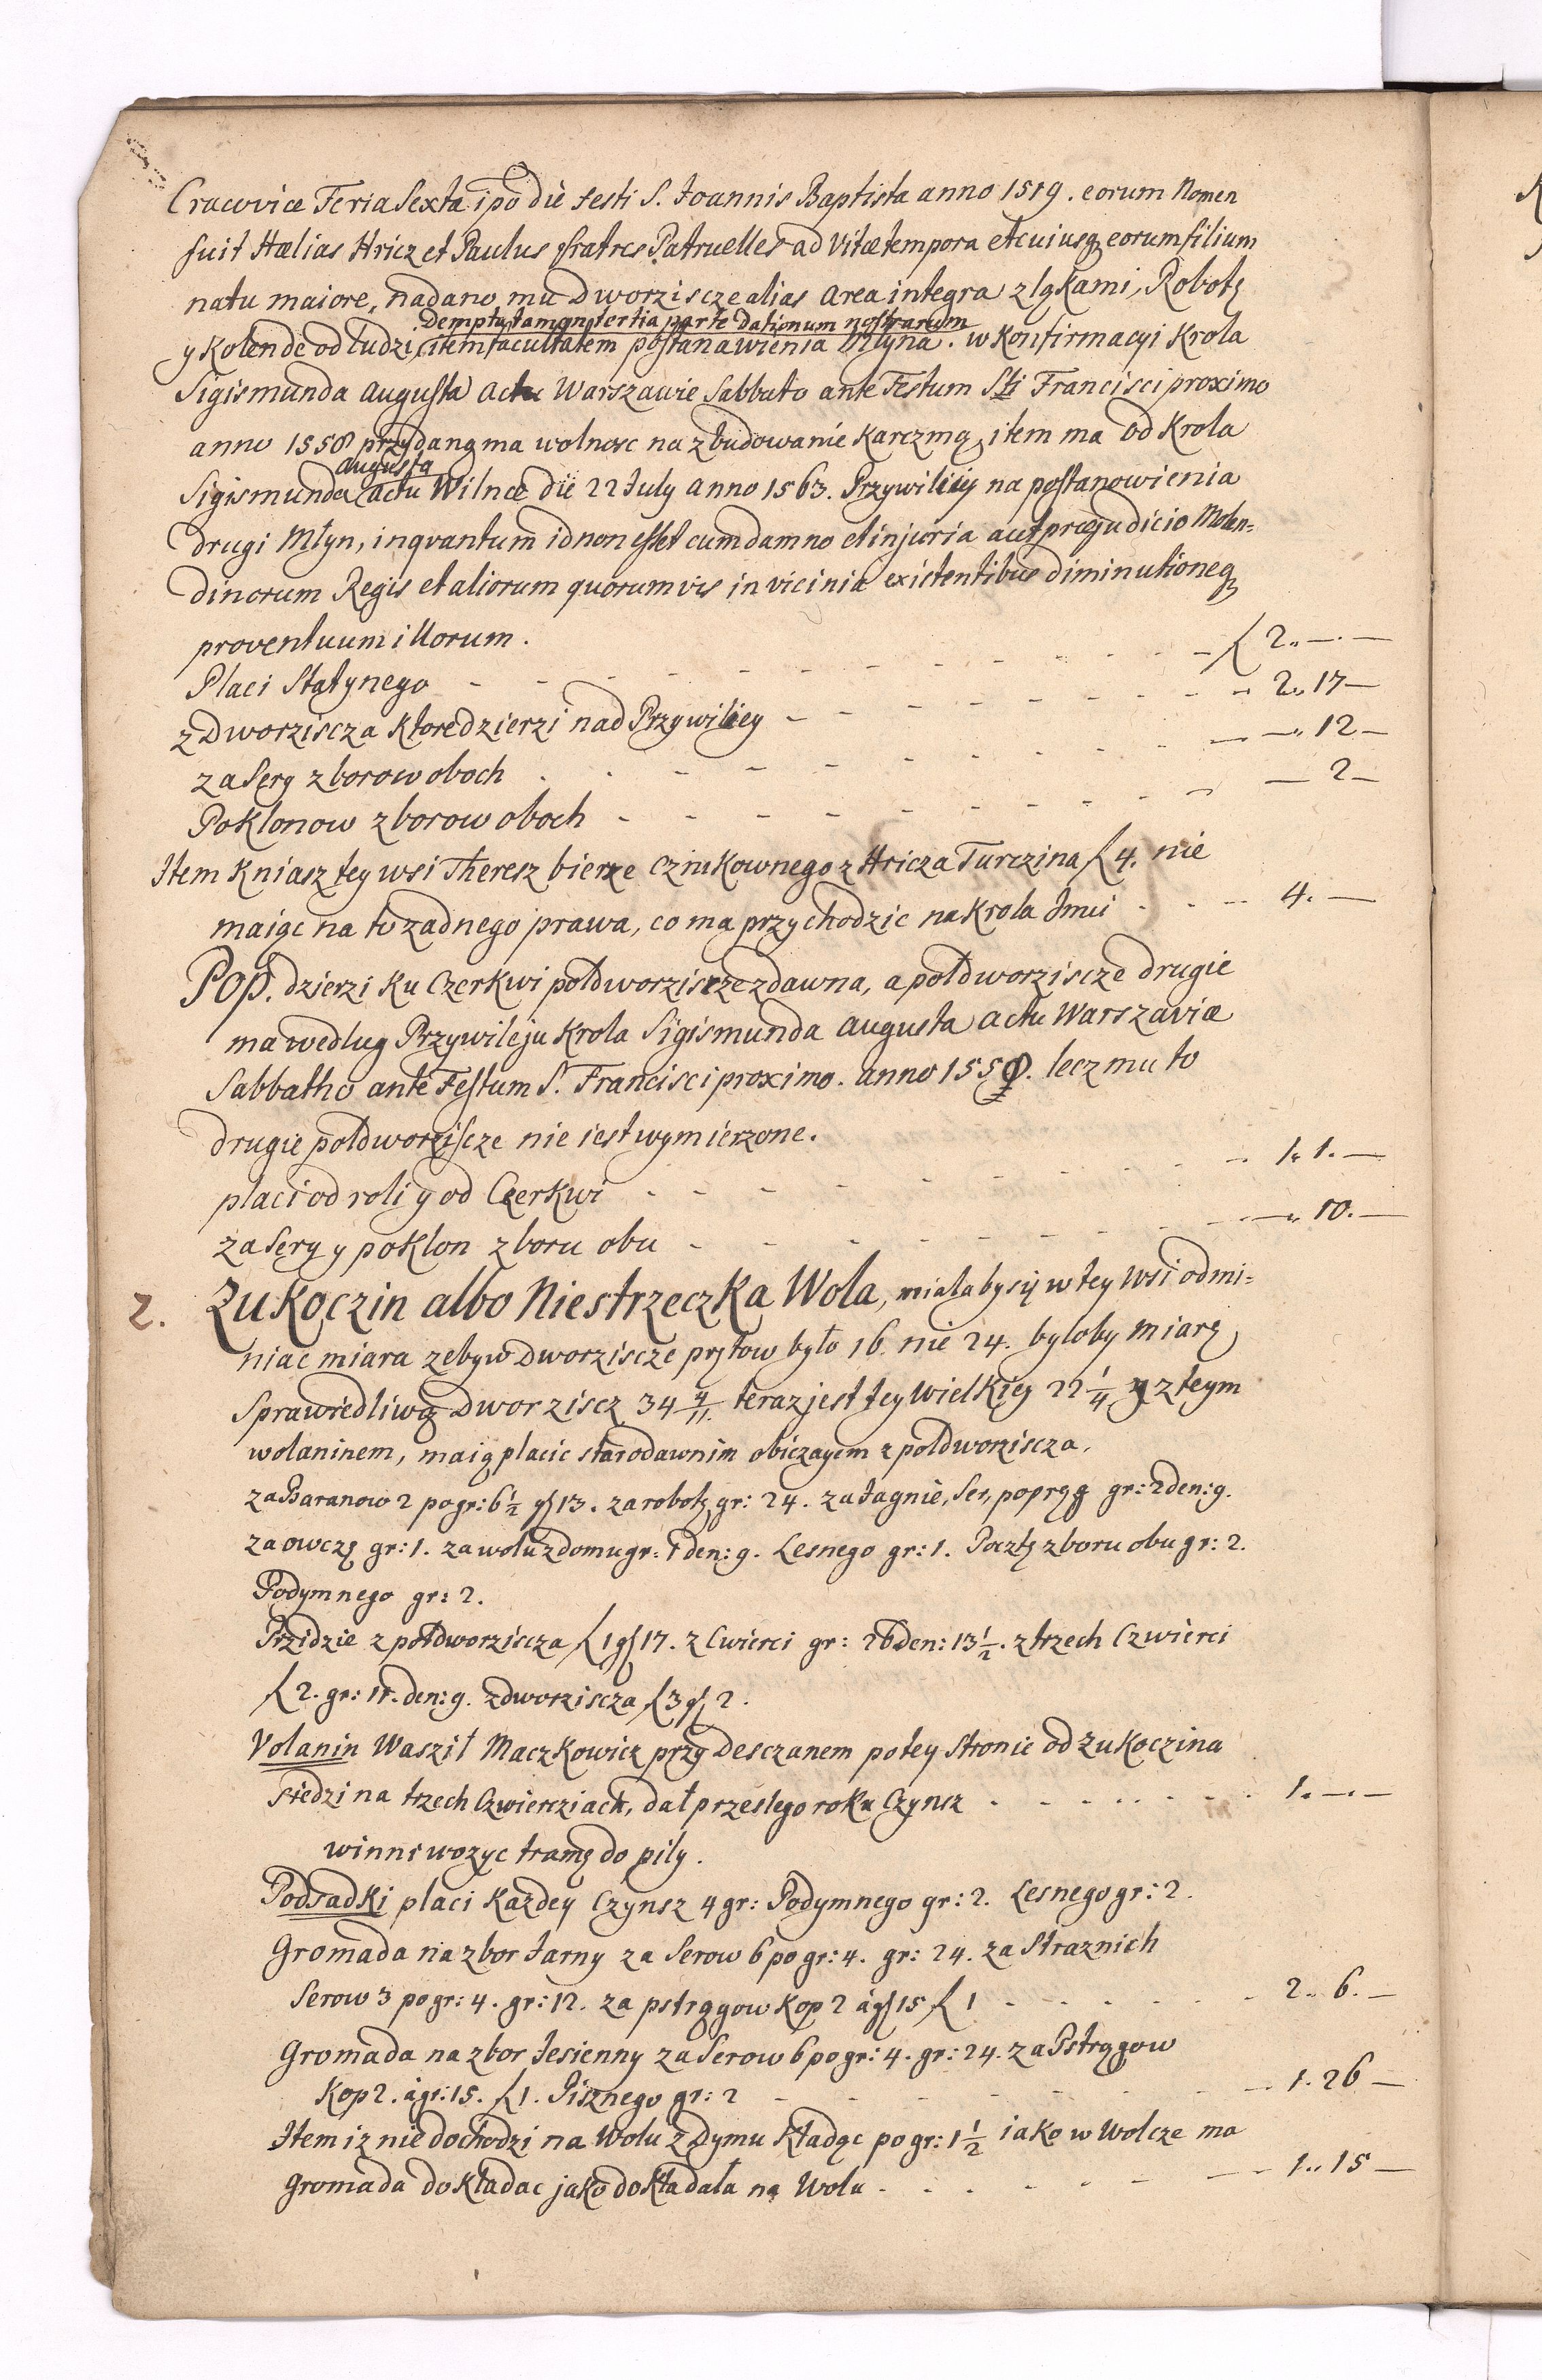 Cracoviæ Feria Sexta ipo die festi S. Joannis Baptista anno 1519. eorum Nomen
fuit Hælias Hricz et Paulus fratres Patruelles ad Vitæ tempora et cuiusq eorum filium
natu maiore, nadano mu Dworziscze alias area integra z ląkami, Robotę
Dempta tamen tertia parte Dationum nostrarum
y Kolende od ludzi, item facultatem postanawienia Mlyna. w Konfirmacyi Krola
Sigismunda Augusta Actu Warszawie Sabbato ante Festum Sti Francisci proximo
anno 1558 przydaną ma wolnosc na zbudowanie Karczmą, item ma od Krola
Augusta
Sigismunda Actu Wilnæ die 22 July anno 1563. Przywiliy na postanowienia
drugi Młyn, inqvantum id non esset cum damno et injuria aut præjudicio Molen=
dinorum Regis et aliorum quorumvis in vicinia existentibus diminutioneq
proventuum illorum.
Placi Statynego - - - - - - - - ƒ 2 ,, — . —
z Dworziscza Ktore dzierzi nad Przywiliey - - - - - - 2 ,, 17 —
za Sery z borow oboch - - - - - - — ,, 12 —
Poklonow z borow oboch - - - - - - — 2 —
Item Kniasz tey wsi Theresz bierze Czinkownego z Hricza Turczina ƒ 4. nie
maiąc na to zadnego prawa, co ma przychodzic na Krola Jmci - - - 4. —
Pop. dzierzi Ku Czerkwi połdworziscze zdawna, a połdworziscze drugie
ma wedlug Przywileju Krola Sigismunda Augusta Actu Warszaviæ
Sabbatho ante Festum S. Francisci proximo. anno 1558. lecz mu to
drugie połdworziscze nie iest wymierzone.
placi od roli y od Czerkwi - - - - - - 1 ,, 1. —
za Sery y poklon z boru obu - - - - - - — ,, 10. —
2. Zukoczin albo Niestrzeczka Wola, miałaby się w tey Wsi odmi=
niac miara zeby w Dworziscze prętow było 16. nie 24. byłoby miarę
Sprawiedliwą Dworziscz 34 4/11. teraz jest tey Wielkiey 22 1/4 y z teym
wolaninem, maią placic starodawnim obiczayem z połdworziscza.
za Baranow 2 po gr: 6 1/2 gł 13. za robotę gr: 24. za Jagnie, Ser, popręg gr: 2 den: 9.
za owczę gr: 1. za wolu z domu gr: 1 den: 9. Lesnego gr: 1. Pocztę z boru obu gr: 2.
Podymnego gr: 2.
Przidzie z połdworziscza ƒ 1 gł 17. z Cwierci gr: 26 den: 13 1/2. z trzech Czwierci
ƒ 2. gr: 11. den: 9. z dworziscza ƒ 3 gł 2.
Volanin Waszil Maczkowicz przy Desczanem po tey stronie od Zukoczina
siedzi na trzech Czwierciach, dał przeslego roku Czynsz - - - - - - 1. — . —
winni wozyc tramę do piły.
Podsadki placi Kazdey Czynsz 4 gr: Podymnego gr: 2. Lesnego gr: 2.
Gromada na zbor Jarny za Serow 6 po gr: 4. gr: 24. za Straznich
Serow 3 po gr: 4. gr: 12. za pstrągow Kop 2 à gł 15 ƒ 1 - - - - - - 2 ,, 6. —
Gromada na zbor Jesienny za Serow 6 po gr: 4. gr: 24. za Pstrągow
Kop 2. à gr: 15. ƒ 1. Pisznego gr: 2 - - - - - - 1. 26 —
Item iz nie dochodzi na Wolu z Dymu Kładąc po gr: 1 1/2 iako w Wolcze ma
Gromada dokładac jako dokładała na Wolu - - - - - - 1 ,, 15 —